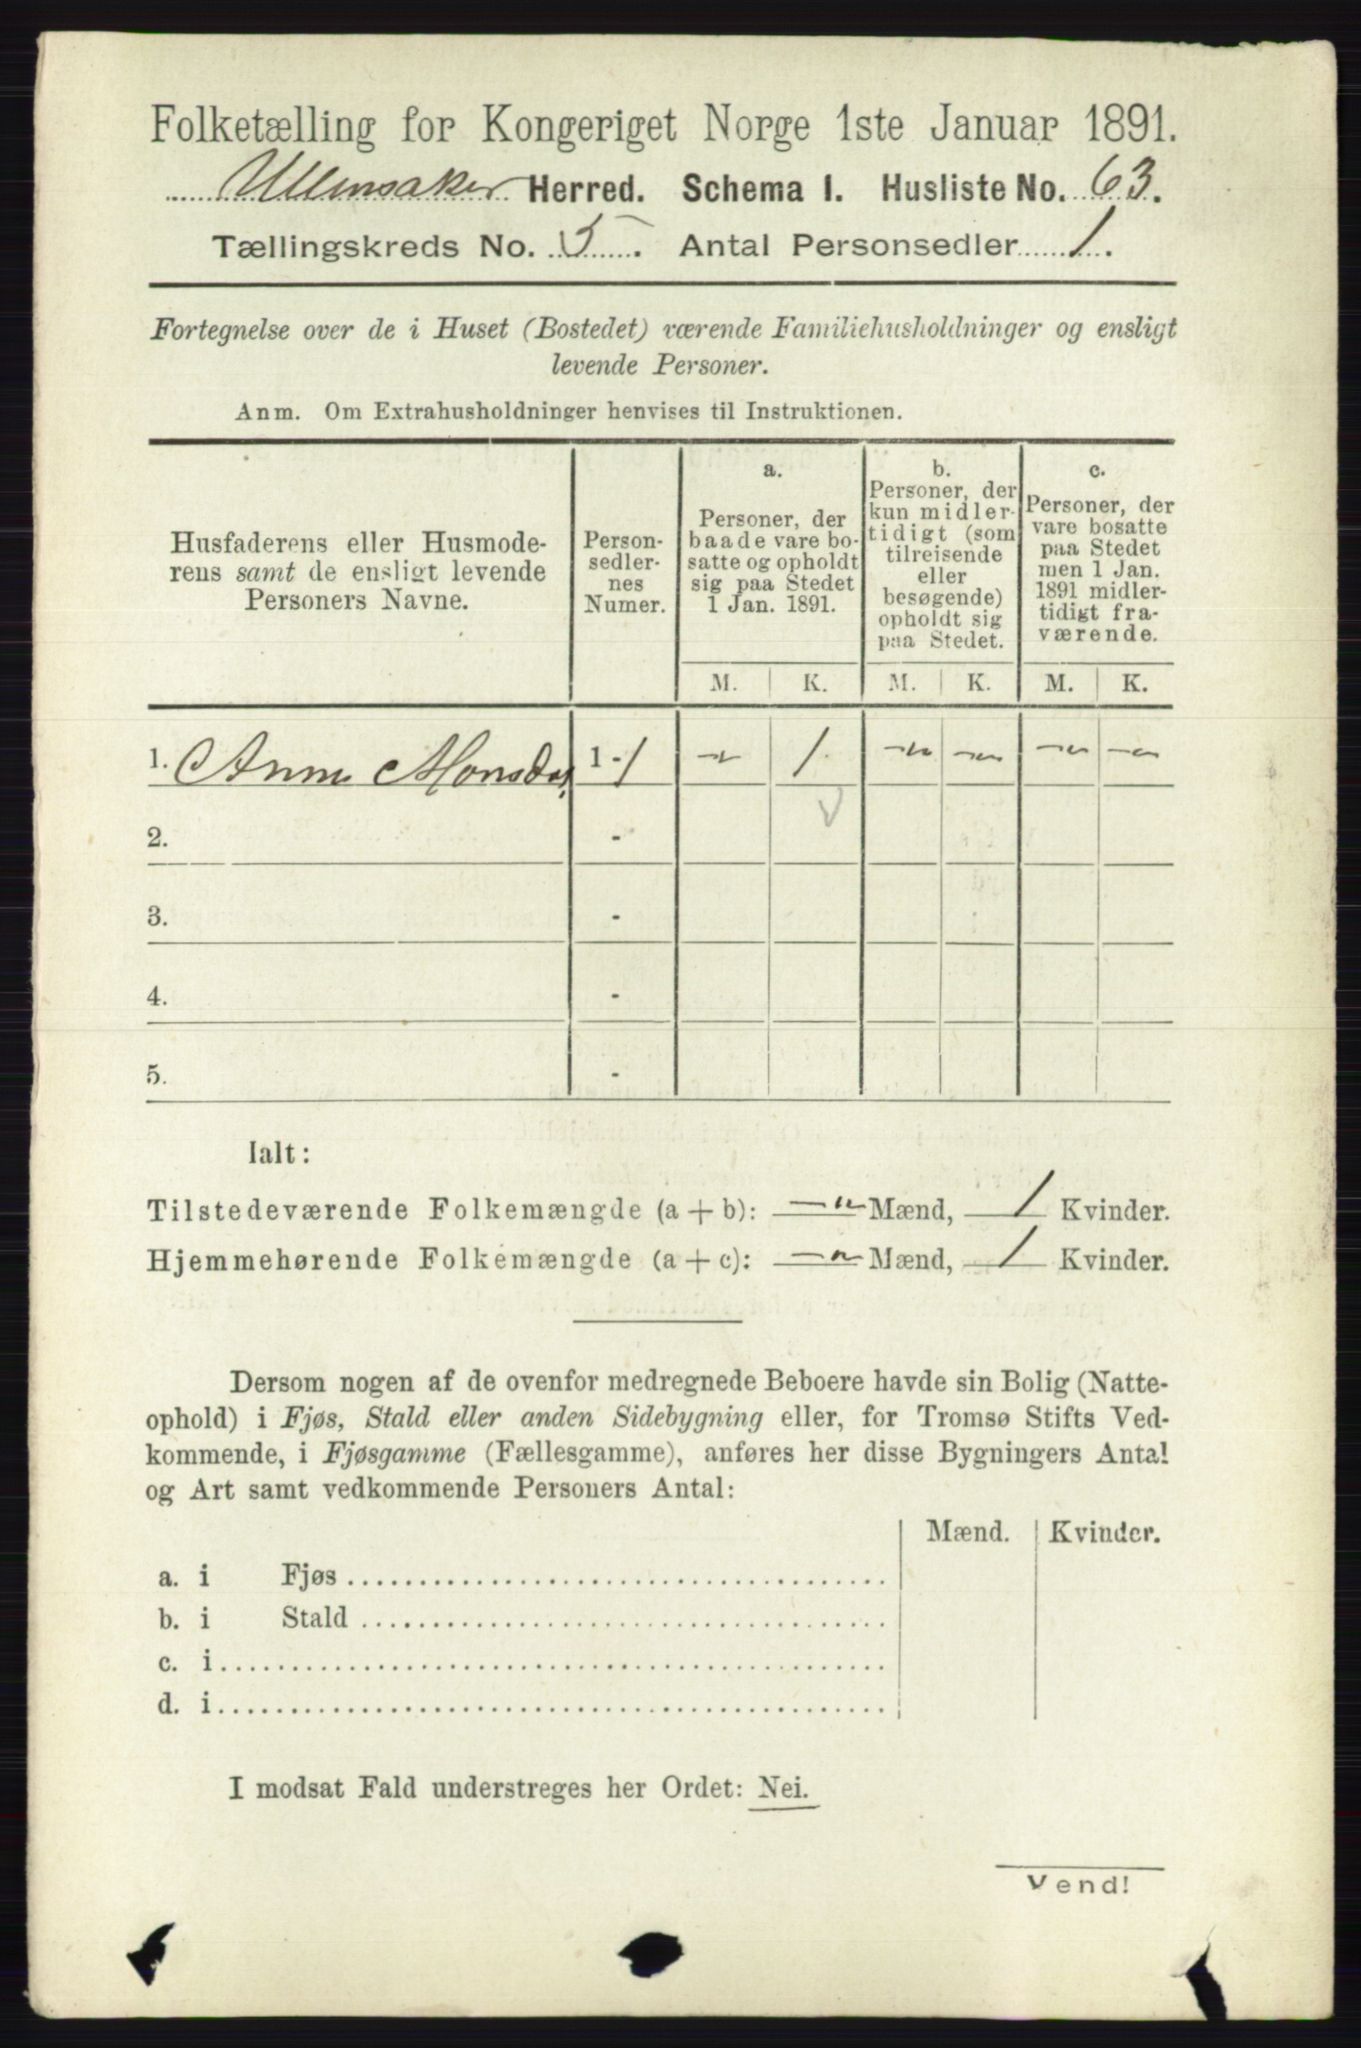 Folketælling for Kongeriget Norge 1ste Januar 1891.
Ullensaker Herred. Schema I. Husliste No. 63.
Tællingskreds No. 5. Antal Personsedler 1.
Fortegnelse over de i Huset (Bostedet) værende Familiehusholdninger og ensligt
levende Personer.
Anm. Om Extrahusholdninger henvises til Instruktionen.
Husfaderens eller Husmode-
rens samt de ensligt levende
Personers Navne.
Person-
sedler-
nes
Numer.
a.
Personer, der
baade vare bo-
satte og opholdt
sig paa Stedet
1 Jan. 1891.
b.
Personer, der
kun midler-
tidigt (som
tilreisende
eller
besøgende)
opholdt sig
paa Stedet.
c.
Personer, der
vare bosatte
paa Stedet
men 1 Jan.
1891 midler-
tidigt fra-
værende.
M. K. M. K. M. K.
1. Anne Monsdat 1 - 1 — 1. — — — —
2. -
3. -
4. -
5. -
Ialt:
Tilstedeværende Folkemængde (a + b): — Mænd, 1 Kvinder.
Hjemmehørende Folkemængde (a + c): — Mænd, 1 Kvinder.
Dersom nogen af de ovenfor medregnede Beboere havde sin Bolig (Natte-
ophold) i Fjøs, Stald eller anden Sidebygning eller, for Tromsø Stifts Ved-
kommende, i Fjøsgamme (Fællesgamme), anføres her disse Bygningers Antal
og Art samt vedkommende Personers Antal:
Mænd. Kvinder.
a. i Fjøs
b. i Stald
c. i
d. i
I modsat Fald understreges her Ordet: Nei.
Vend!